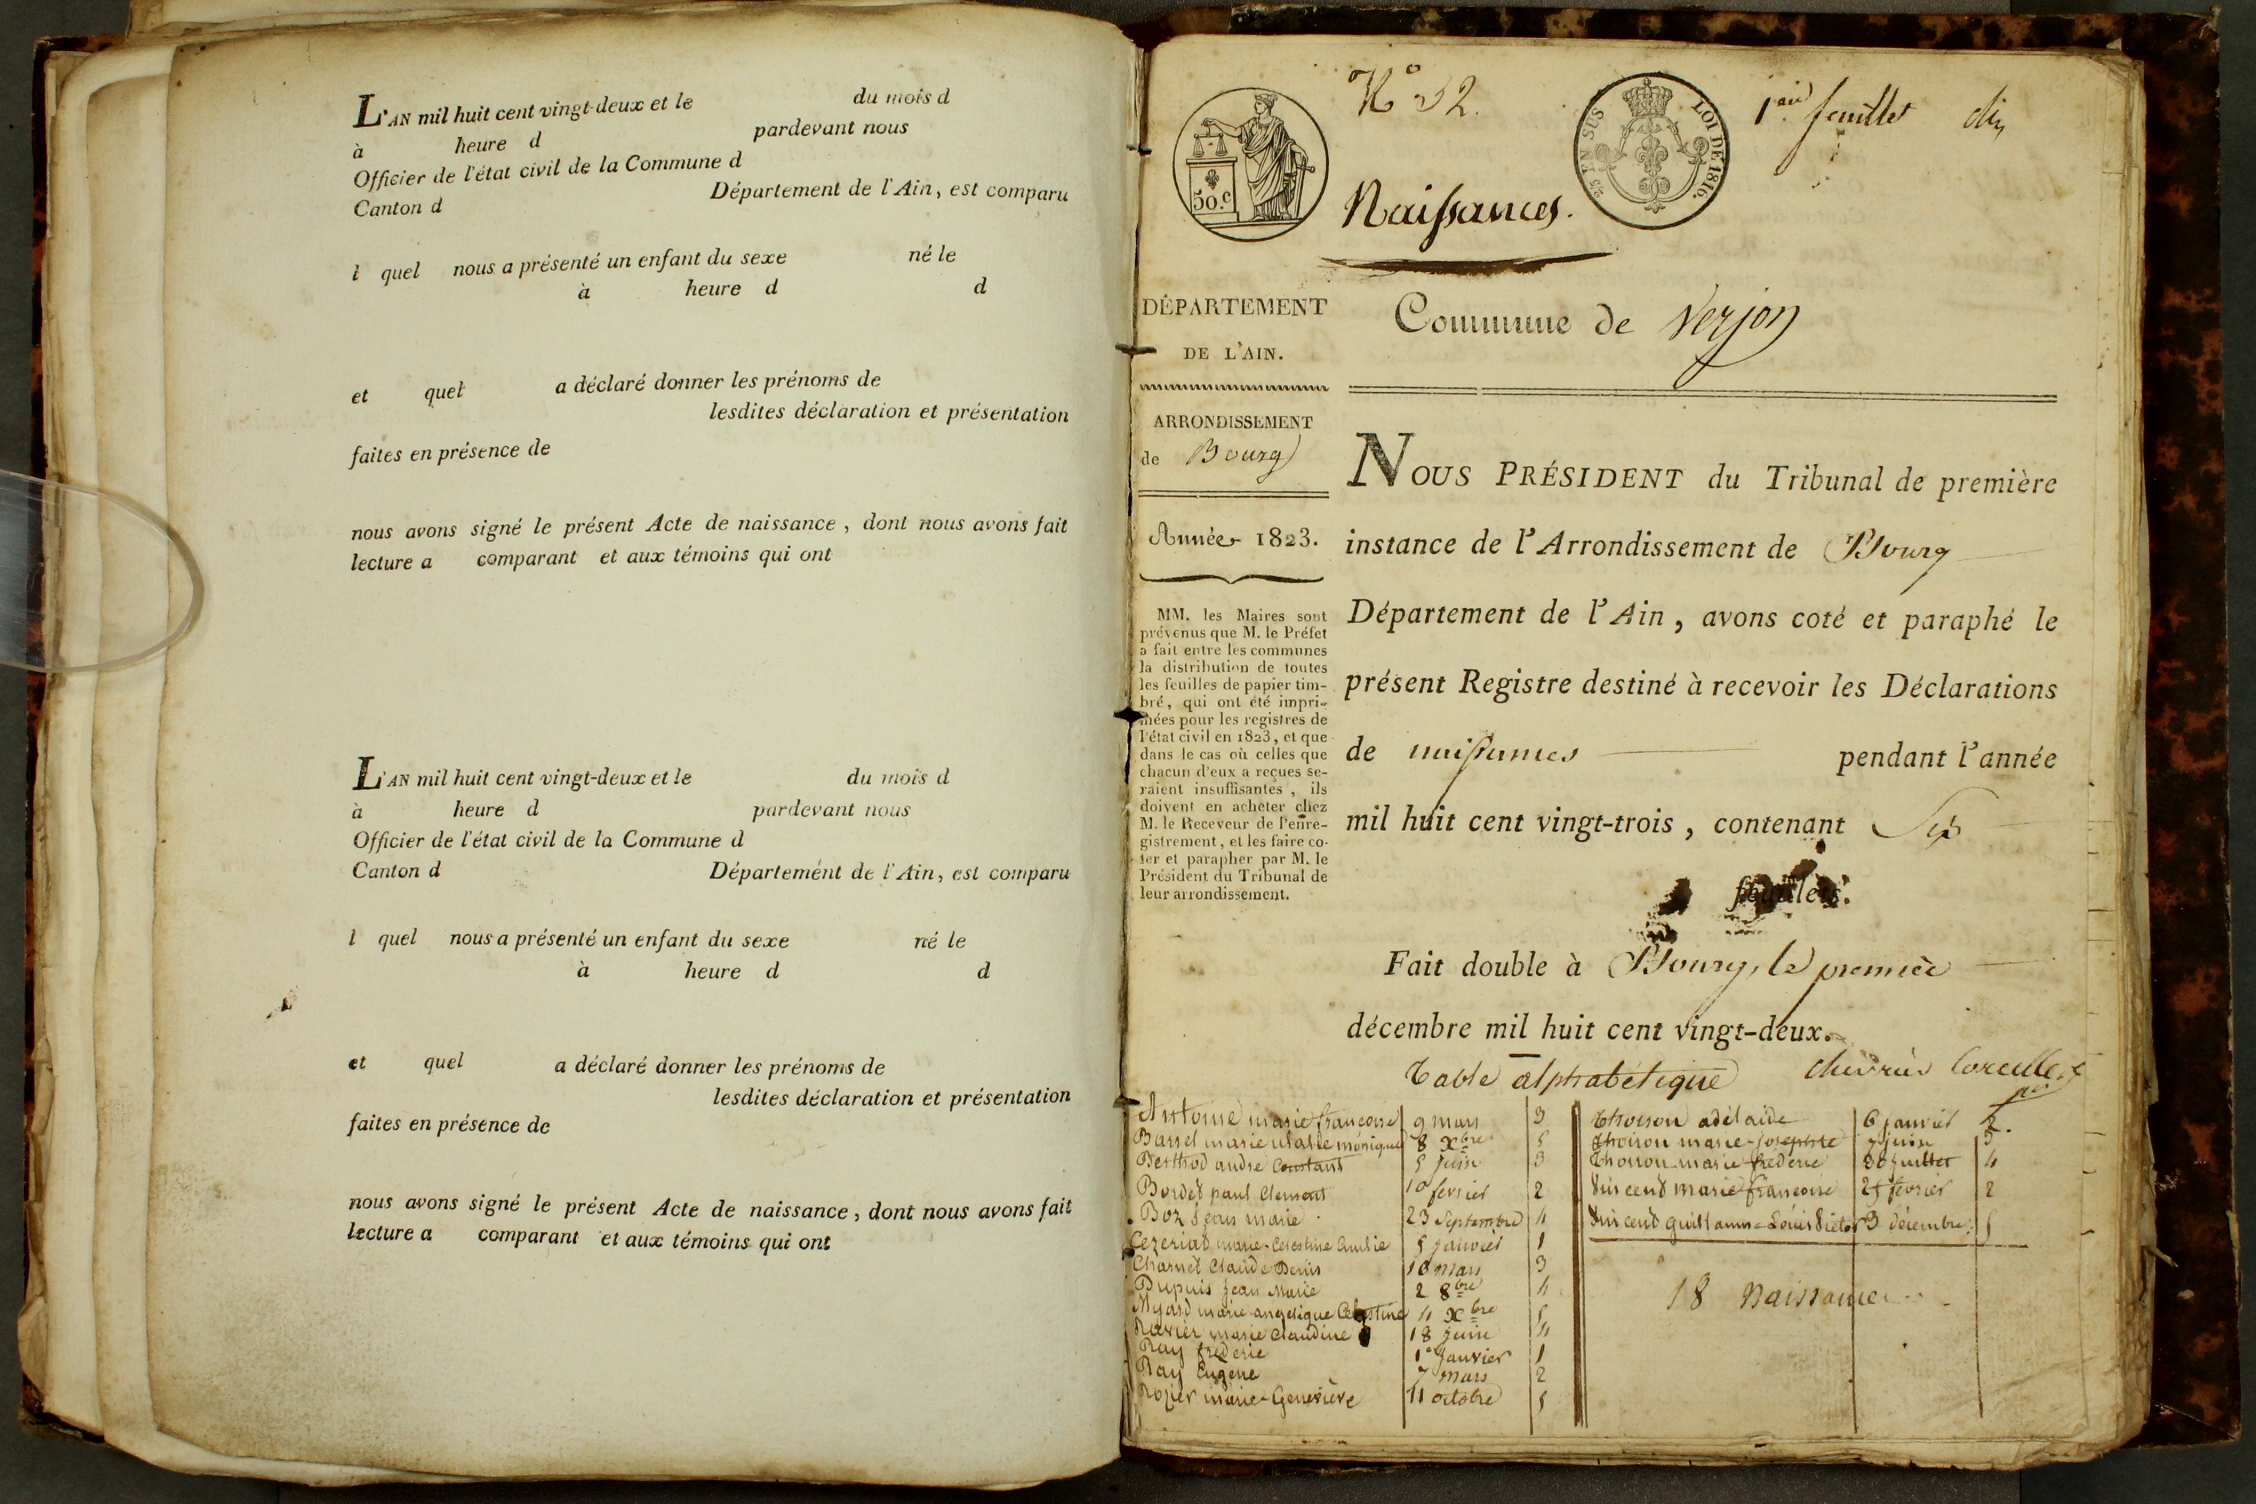 L'AN mil huit cent vingt-deux et le du mois d
à heure d pardevant nous
Officier de l'état civil de la Commune d
Canton d Département de l'Ain, est comparu
l quel nous a présenté un enfant du sexe né le
à heure d d
et quel a déclaré donner les prénoms de
lesdites déclaration et présentation
faites en présence de
nous avons signé le présent Acte de naissance, dont nous avons fait
lecture a comparant et aux témoins qui ont
L'AN mil huit cent vingt-deux et le du mois d
à heure d pardevant nous
Officier de l'état civil de la Commune d
Canton d Département de l'Ain, est comparu
l quel nous a présenté un enfant du sexe né le
à heure d d
et quel a déclaré donner les prénoms de
lesdites déclaration et présentation
faites en présence de
nous avons signé le présent Acte de naissance, dont nous avons fait
lecture a comparant et aux témoins qui ont
N° 32.
feuillet
50.c
25 EN SUS LOI DE 1816.
Naissances.
DÉPARTEMENT
DE L'AIN.
ARRONDISSEMENT
de Bourg
Année 1823.
MM. les Maires sont
prévenus que M. le Préfet
a fait entre les communes
la distribution de toutes
les feuilles de papier tim-
bré, qui ont été impri-
mées pour les registres de
l'état civil en 1823, et que
dans le cas où celles que
chacun d'eux a reçues se-
raient insuffisantes, ils
doivent en acheter chez
M. le Receveur de l'enre-
gistrement, et les faire co-
ter et parapher par M. le
Président du Tribunal de
leur arrondissement.
Commune de Verjon
NOUS PRÉSIDENT du Tribunal de première
instance de l'Arrondissement de Bourg
Département de l'Ain, avons coté et paraphé le
présent Registre destiné à recevoir les Déclarations
de naissances pendant l'année
mil huit cent vingt-trois, contenant Six
feuillets.
Fait double à Bourg, le premier
décembre mil huit cent vingt-deux.
Table alphabétique
Antoine marie françoise 9 mars 3
Barret marie ulalie monique 8 Xbre 5
Berthod andré Constant 5 juin 3
Bordet paul Clement 10 fevrier 2
Boz jean marie 23 Septembre 4
Cezeriat marie-Celestine Emilie 5 janvier 1
Charnet Claude Denis 10 mars 3
Dupuis jean Marie 2 8bre 4
Myard marie angelique Celestine 4 Xbre 5
Ravier marie Claudine 18 juin 4
Ray frederic 1er janvier 1
Ray Eugene 7 mars 2
Rozier marie-Genevieve 11 octobre 5
Thoison adelaide 6 janvier 2.
Thoison marie-josephte 7 juin 3
Thoison marie frederic 30 juillet 4
Vincend marie françoise 25 fevrier 2
Vincend guillaume-Louis Victor 3 décembre 5
18 Naissances